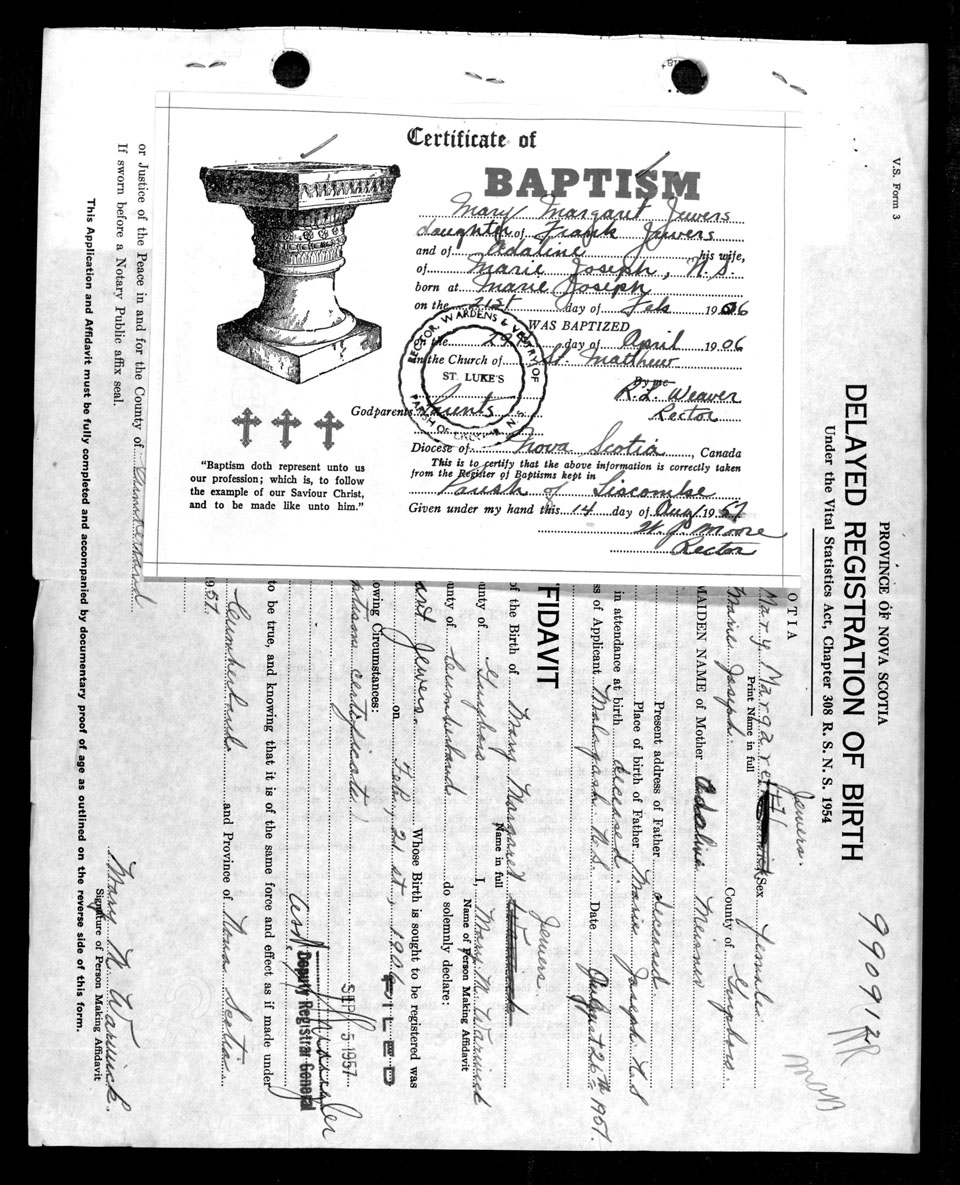 Certificate of
BAPTISM
Mary Margaret Jewers
daughter of Frank Jewers
and of Adaline his wife,
of Marie Joseph, N.S.
born at Marie Joseph
on the 21st day of Feb 1906
WAS BAPTIZED
on the 29 day of April 1906
in the Church of St. Matthew
By me
R.L. Weaver
Rector
Godparents: Parents
Diocese of Nova Scotia, Canada
This is to certify that the above information is correctly taken
from the Register of Baptisms kept in
Parish of Liscombe
Given under my hand this 14 day of Aug. 1957
W. J. Moore
Rector
RECTOR, WARDENS & VESTRY OF
ST. LUKE'S
PARISH OF N.S.
"Baptism doth represent unto us
our profession; which is, to follow
the example of our Saviour Christ,
and to be made like unto him."
V.S. Form 3
PROVINCE OF NOVA SCOTIA
DELAYED REGISTRATION OF BIRTH
Under the Vital Statistics Act, Chapter 308 R. S. N. S. 1954
990912
RR
OTIA
Jewers.
Mary Margaret Sex Female
Print Name in full
Marie Joseph. County of Guysboro
MAIDEN NAME of Mother Adaline Meisner
Present address of Father deceased.
Place of birth of Father Marie Joseph N.S
in attendance at birth deceased.
ss of Applicant Malagash N.S. Date August 26th 1957.
FIDAVIT
Jewers.
of the Birth of Mary Margaret
Name in full
unty of Guysboro I, Mary M. Warwick
Name of Person Making Affidavit
ounty of Cumberland do solemnly declare:
Whose Birth is sought to be registered was
Jewers. on Feb. 21st, 1906
FILED
owing Circumstances:
aptism certificate)
SEP 5 1957
Deputy Registrar General
to be true, and knowing that it is of the same force and effect as if made under
Cumberland and Province of Nova Scotia
1957.
Mary M Warwick.
Signature of Person Making Affidavit
or Justice of the Peace in and for the County of Cumberland
If sworn before a Notary Public affix seal.
This Application and Affidavit must be fully completed and accompanied by documentary proof of age as outlined on the reverse side of this form.